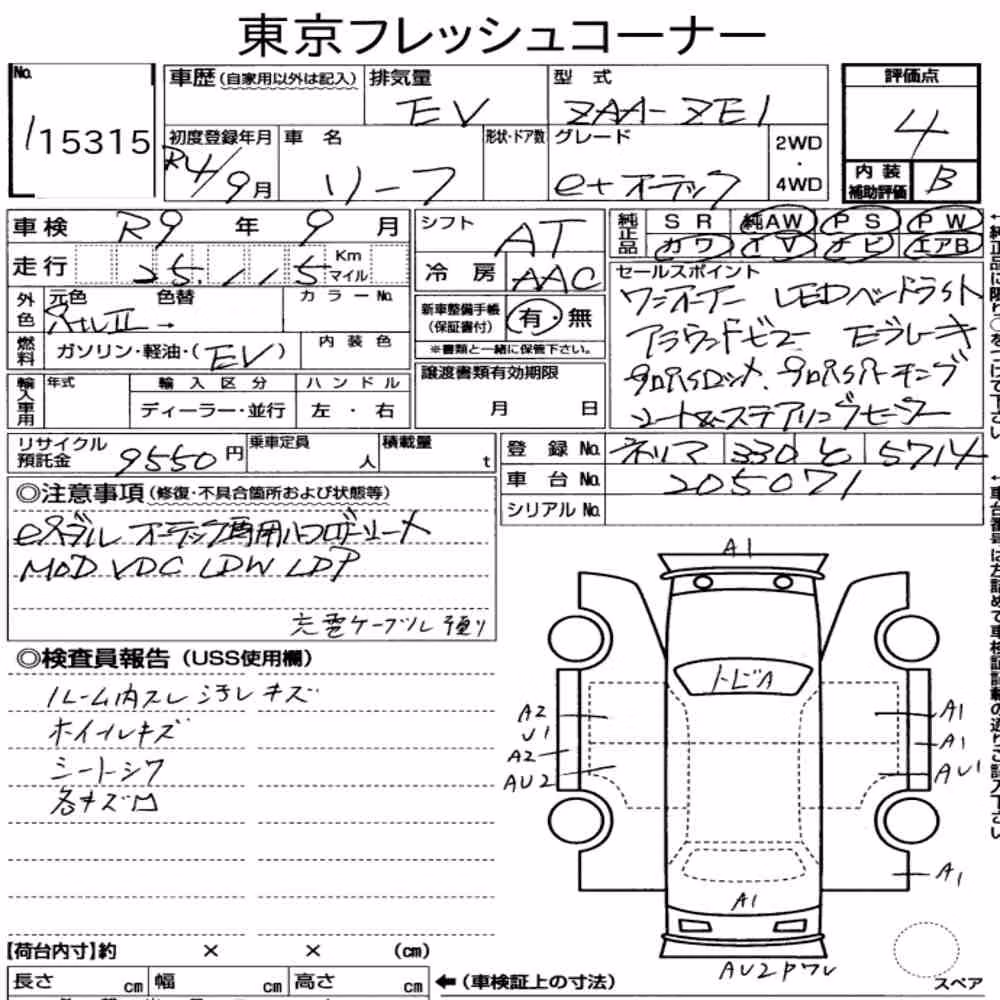 東京フレッシュコーナー
No. 115315
車歴 (自家用以外は記入)
排気量 EV
型式 ZAA-ZE1
評価点 4
初度登録年月 R4/9月
車名 リーフ
形状・ドア数
グレード e+ オーテック
2WD・4WD
内装補助評価 B
車検 R9 年 9 月
走行 25,115 Km マイル
外色 元色 色替
カラーNo.
燃料 ガソリン・軽油・(EV)
内装色
輸入車用 年式 輸入区分 ハンドル
ディーラー・並行 左・右
シフト AT
冷房 AAC
新車整備手帳(保証書付) 有・無
※書類と一緒に保管下さい。
譲渡書類有効期限
月 日
純正品 SR 純AW PS PW
カワ TV ナビ エアB
セールスポイント
ワンオーナー LEDヘッドライト
アラウンドビュー Eブレーキ
プロパイロット、プロパイパーキング
シート&ステアリングヒーター
←純正品に限り○をつけて下さい
リサイクル預託金 9550 円
乗車定員 人
積載量 t
登録No. ネリマ 330 と 5714
車台No. 205071
シリアルNo.
←車台番号は左詰めで車検証記載の通りご記入下さい
◎注意事項 (修復・不具合箇所および状態等)
eペダル オーテック専用ハーフレザーシート
MOD VDC LDW LDP
充電ケーブル 預り
◎検査員報告 (USS使用欄)
ルーム内スレ 汚レ キズ
ホイールキズ
シートシワ
各キズ凹
A1
トビA
A2
U1
A2
AU2
A1
A1
AU1
A1
A1
AU2Pワレ
スペア
【荷台内寸】約 × × (cm)
長さ cm 幅 cm 高さ cm
←(車検証上の寸法)